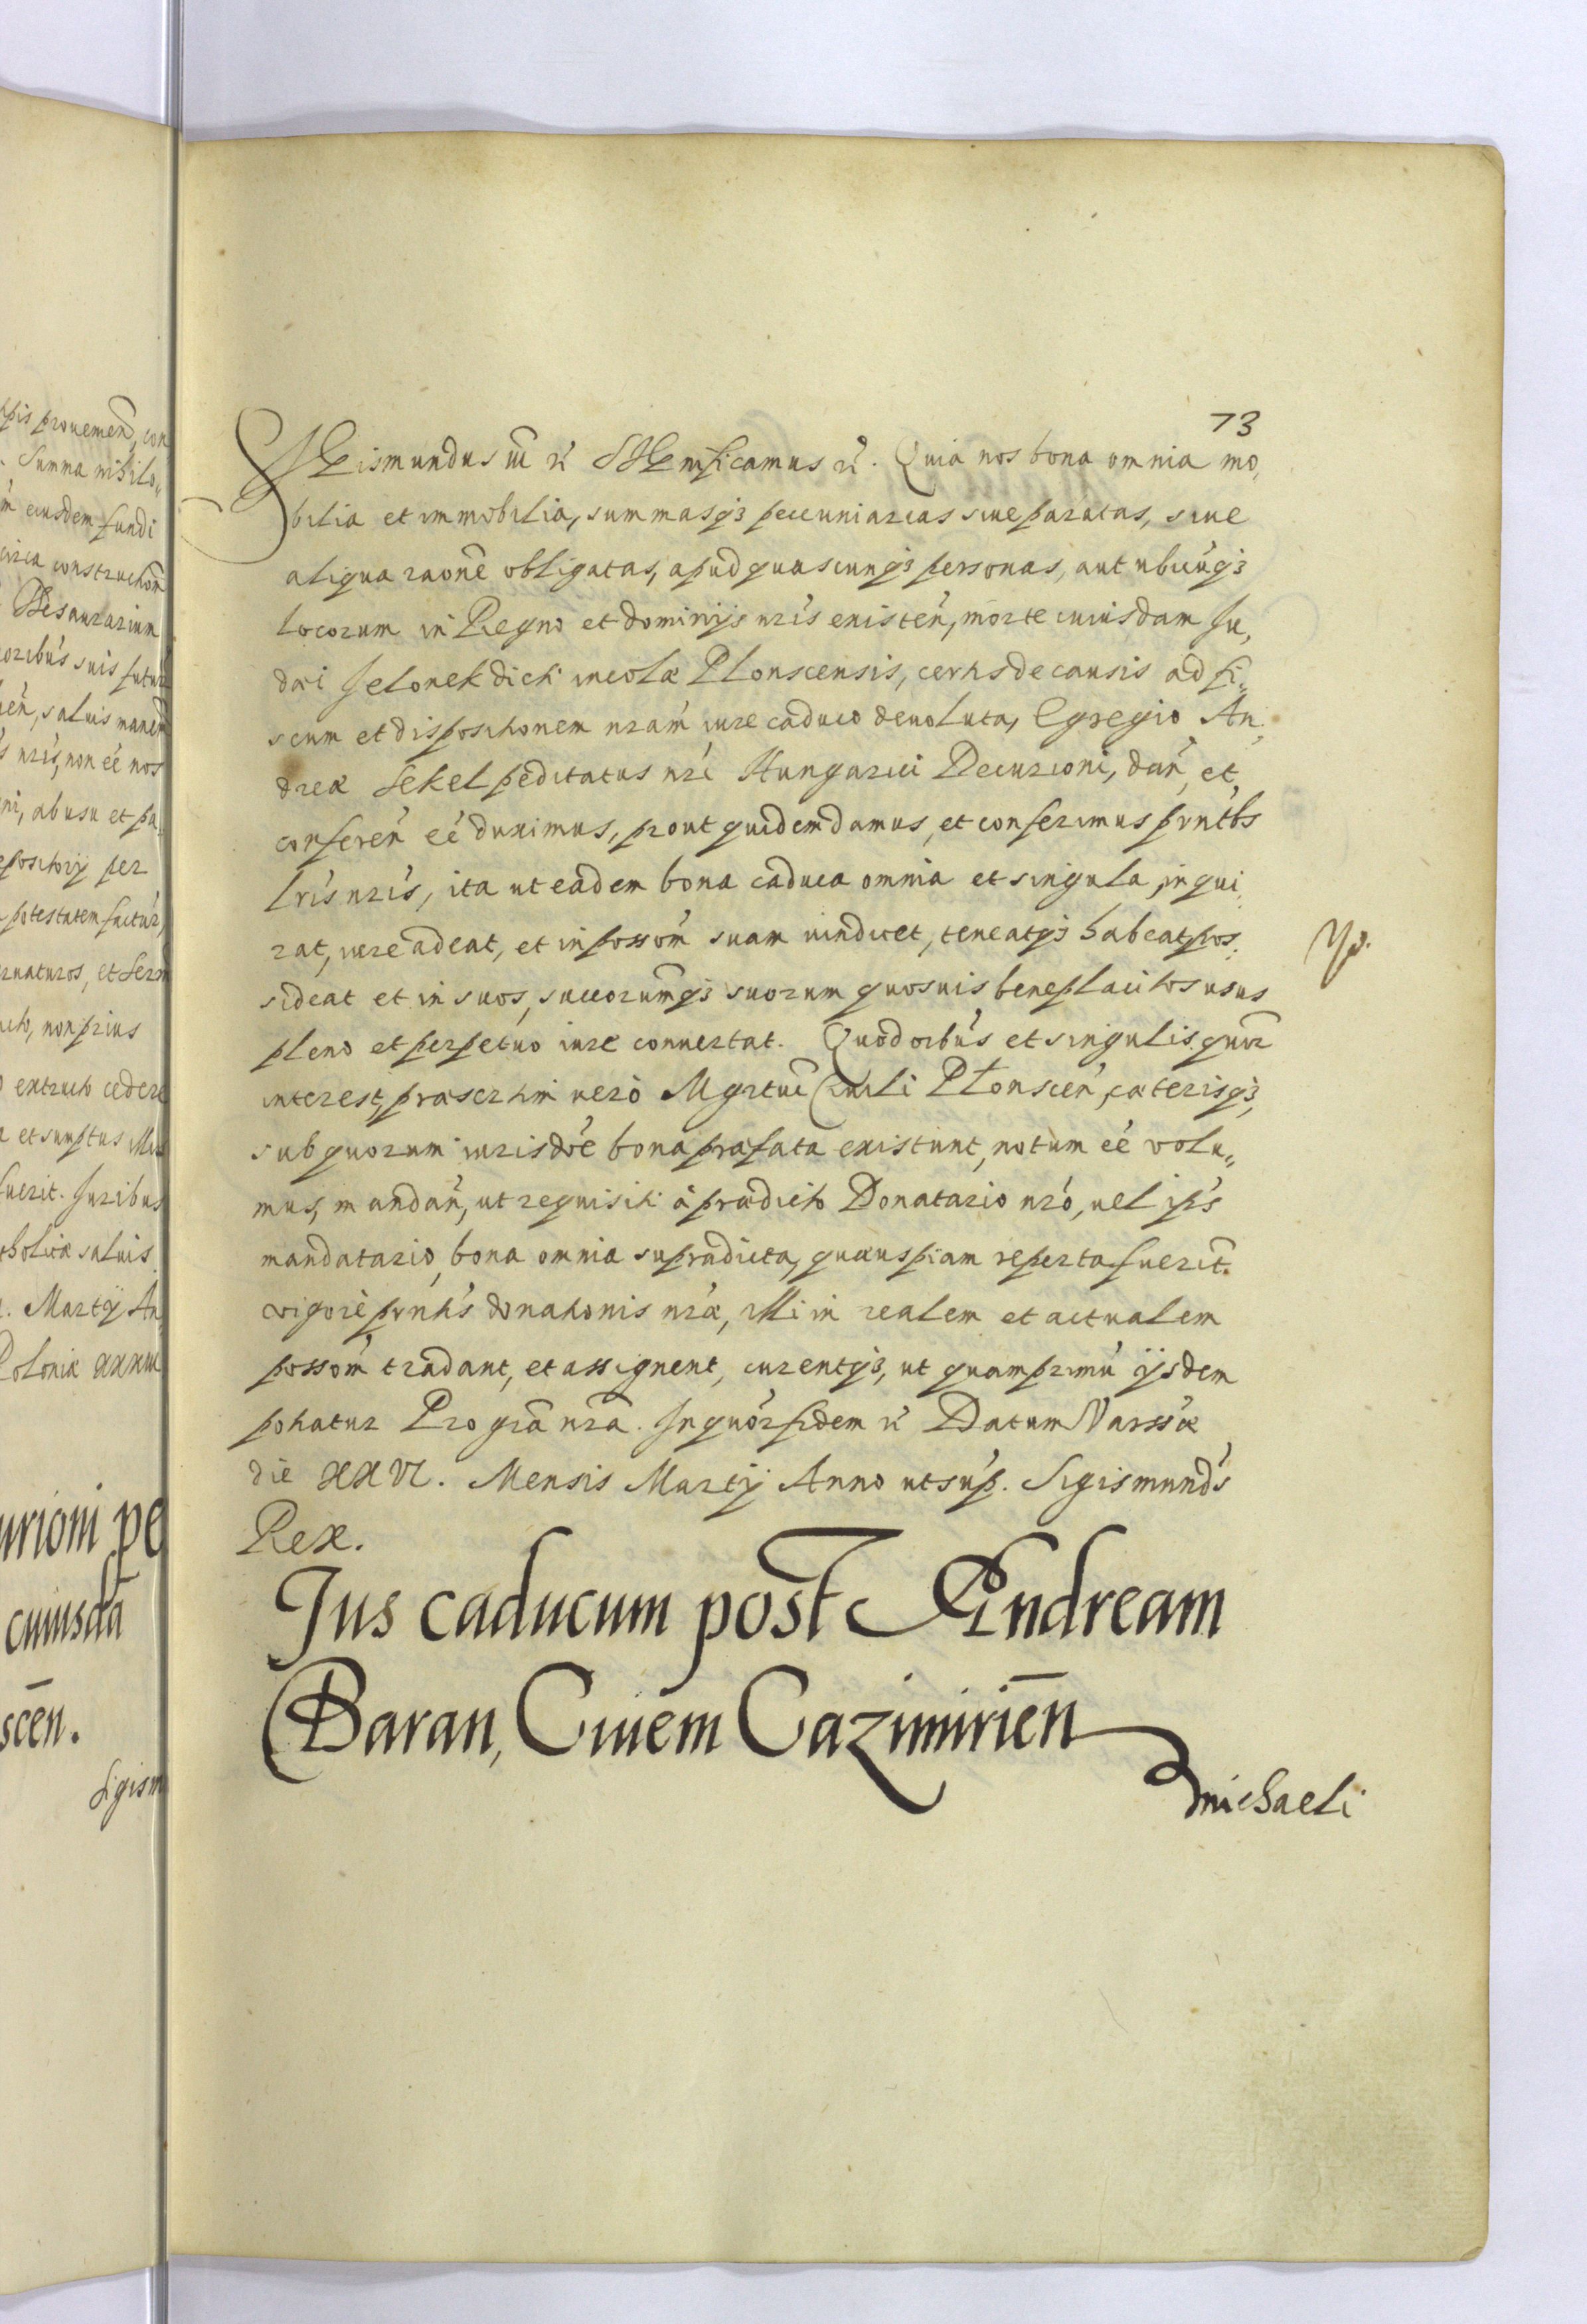 ppis prouemen̄, con
. Summa nihilo„
m̄ eiusdem fundi
circa constructiom̄
Thesaurarium
oribus suis futur
en̄, saluis manen̄
s nr̄is, non eē nos
ni, ab usu et pa
epositorij per
potestatem factur̄,
ruaturos, et Serm
cto, non prius
extructo cedere
a et sumptus illius
fuerit. Juribus
tholicæ saluis.
. Martij An
Poloniæ xxxiii
urioni pe
cuiusdā
scēn.
Sigism
73
Sigismundus iii rc̄ Significamus rc̄. Quia nos bona omnia mo„
bilia et immobilia, summasq3 pecuniarias siue paratas, siue
aliqua raōne obligatas, apud quascunq3 personas, aut ubicūq3
locorum in Regno et dominijs nr̄is existen̄, morte cuiusdam Ju„
dæi Jelonek dicti incolæ Plonscensis, certis de causis ad fi„
scum et dispositionem nr̄am iure caduco deuoluta, Egregio An„
dreæ Sekel peditatus nr̄i Hungarici Decurioni, dan̄, et
conferen̄ eē duximus, prout quidem damus, et conferimus pr̄ntbs
lr̄is nr̄is, ita ut eadem bona caduca omnia et singula, inqui„
rat, iure adeat, et in possom̄ suam uindicet, teneatq3 habeat pos„
sideat et in suos, succorumq3 suorum quosuis beneplacitos usus
pleno et perpetuo iure conuertat. Quod oībus et singulis, quor̄
interest, præsertim uero Mgr̄tui Ciuili Plonscen̄, cæterisq3,
sub quorum iurisdōe bona præfata existunt, notum eē volu„
mus, mandan̄, ut requisiti à prædicto Donatario nr̄o, uel ip̄s
mandatario, bona omnia supradicta, quæuspiam reperta fuerit.
vigore pr̄ntis donationis nr̄æ, illi in realem et actualem
possom̄ tradant, et assignent, curentq3, ut quamprimū ijsdem
potiatur Pro gr̄a nr̄a. In quor̄ fidem rc̄ Datum Varss̄æ
die XXVI. Mensis Martij Anno ut sup̄. Sigismund's
Rex.
Yp.
Jus caducum post Andream
Baran, Ciuem Cazimirien̄
Michaeli